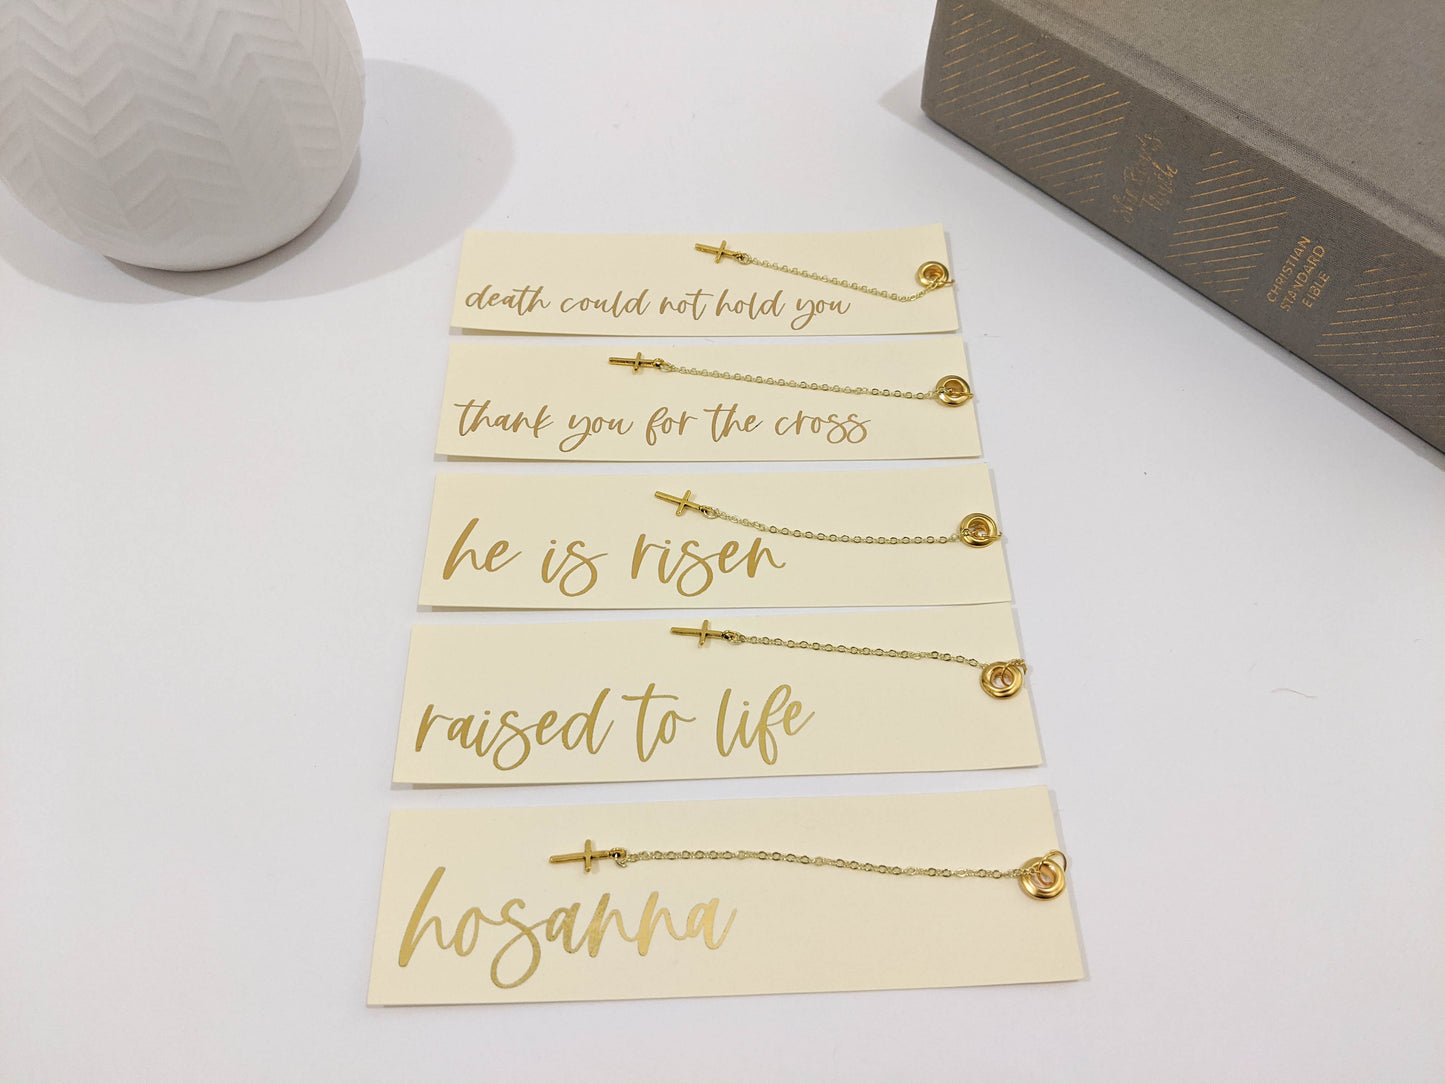 death could not hold you
thank you for the cross
he is risen
raised to life
hosanna
She Reads
Truth
CHRISTIAN
STANDARD
BIBLE